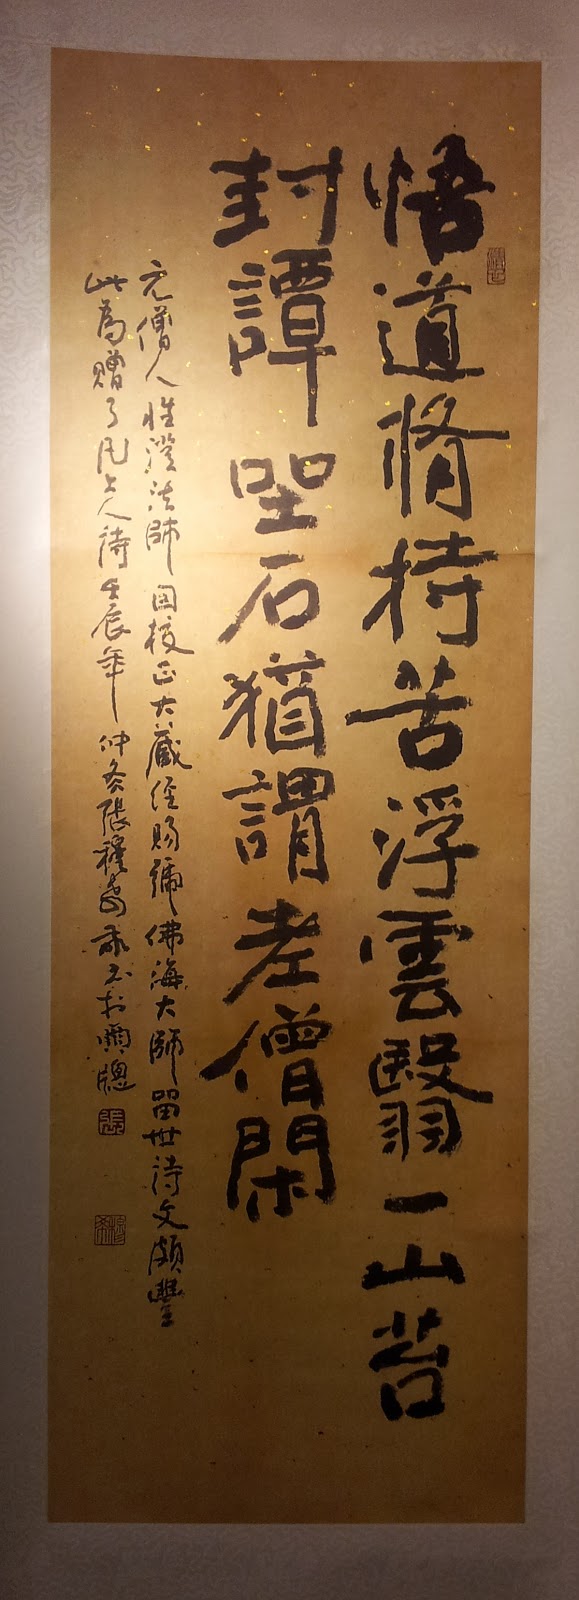 悟道脩持苦浮雲翳一山苔
封譚坐石猶謂老僧閑
元僧人性澄法師因校正大藏經賜號佛海大師留世詩文頗豐
此為贈了凡上人詩壬辰年仲冬張穆